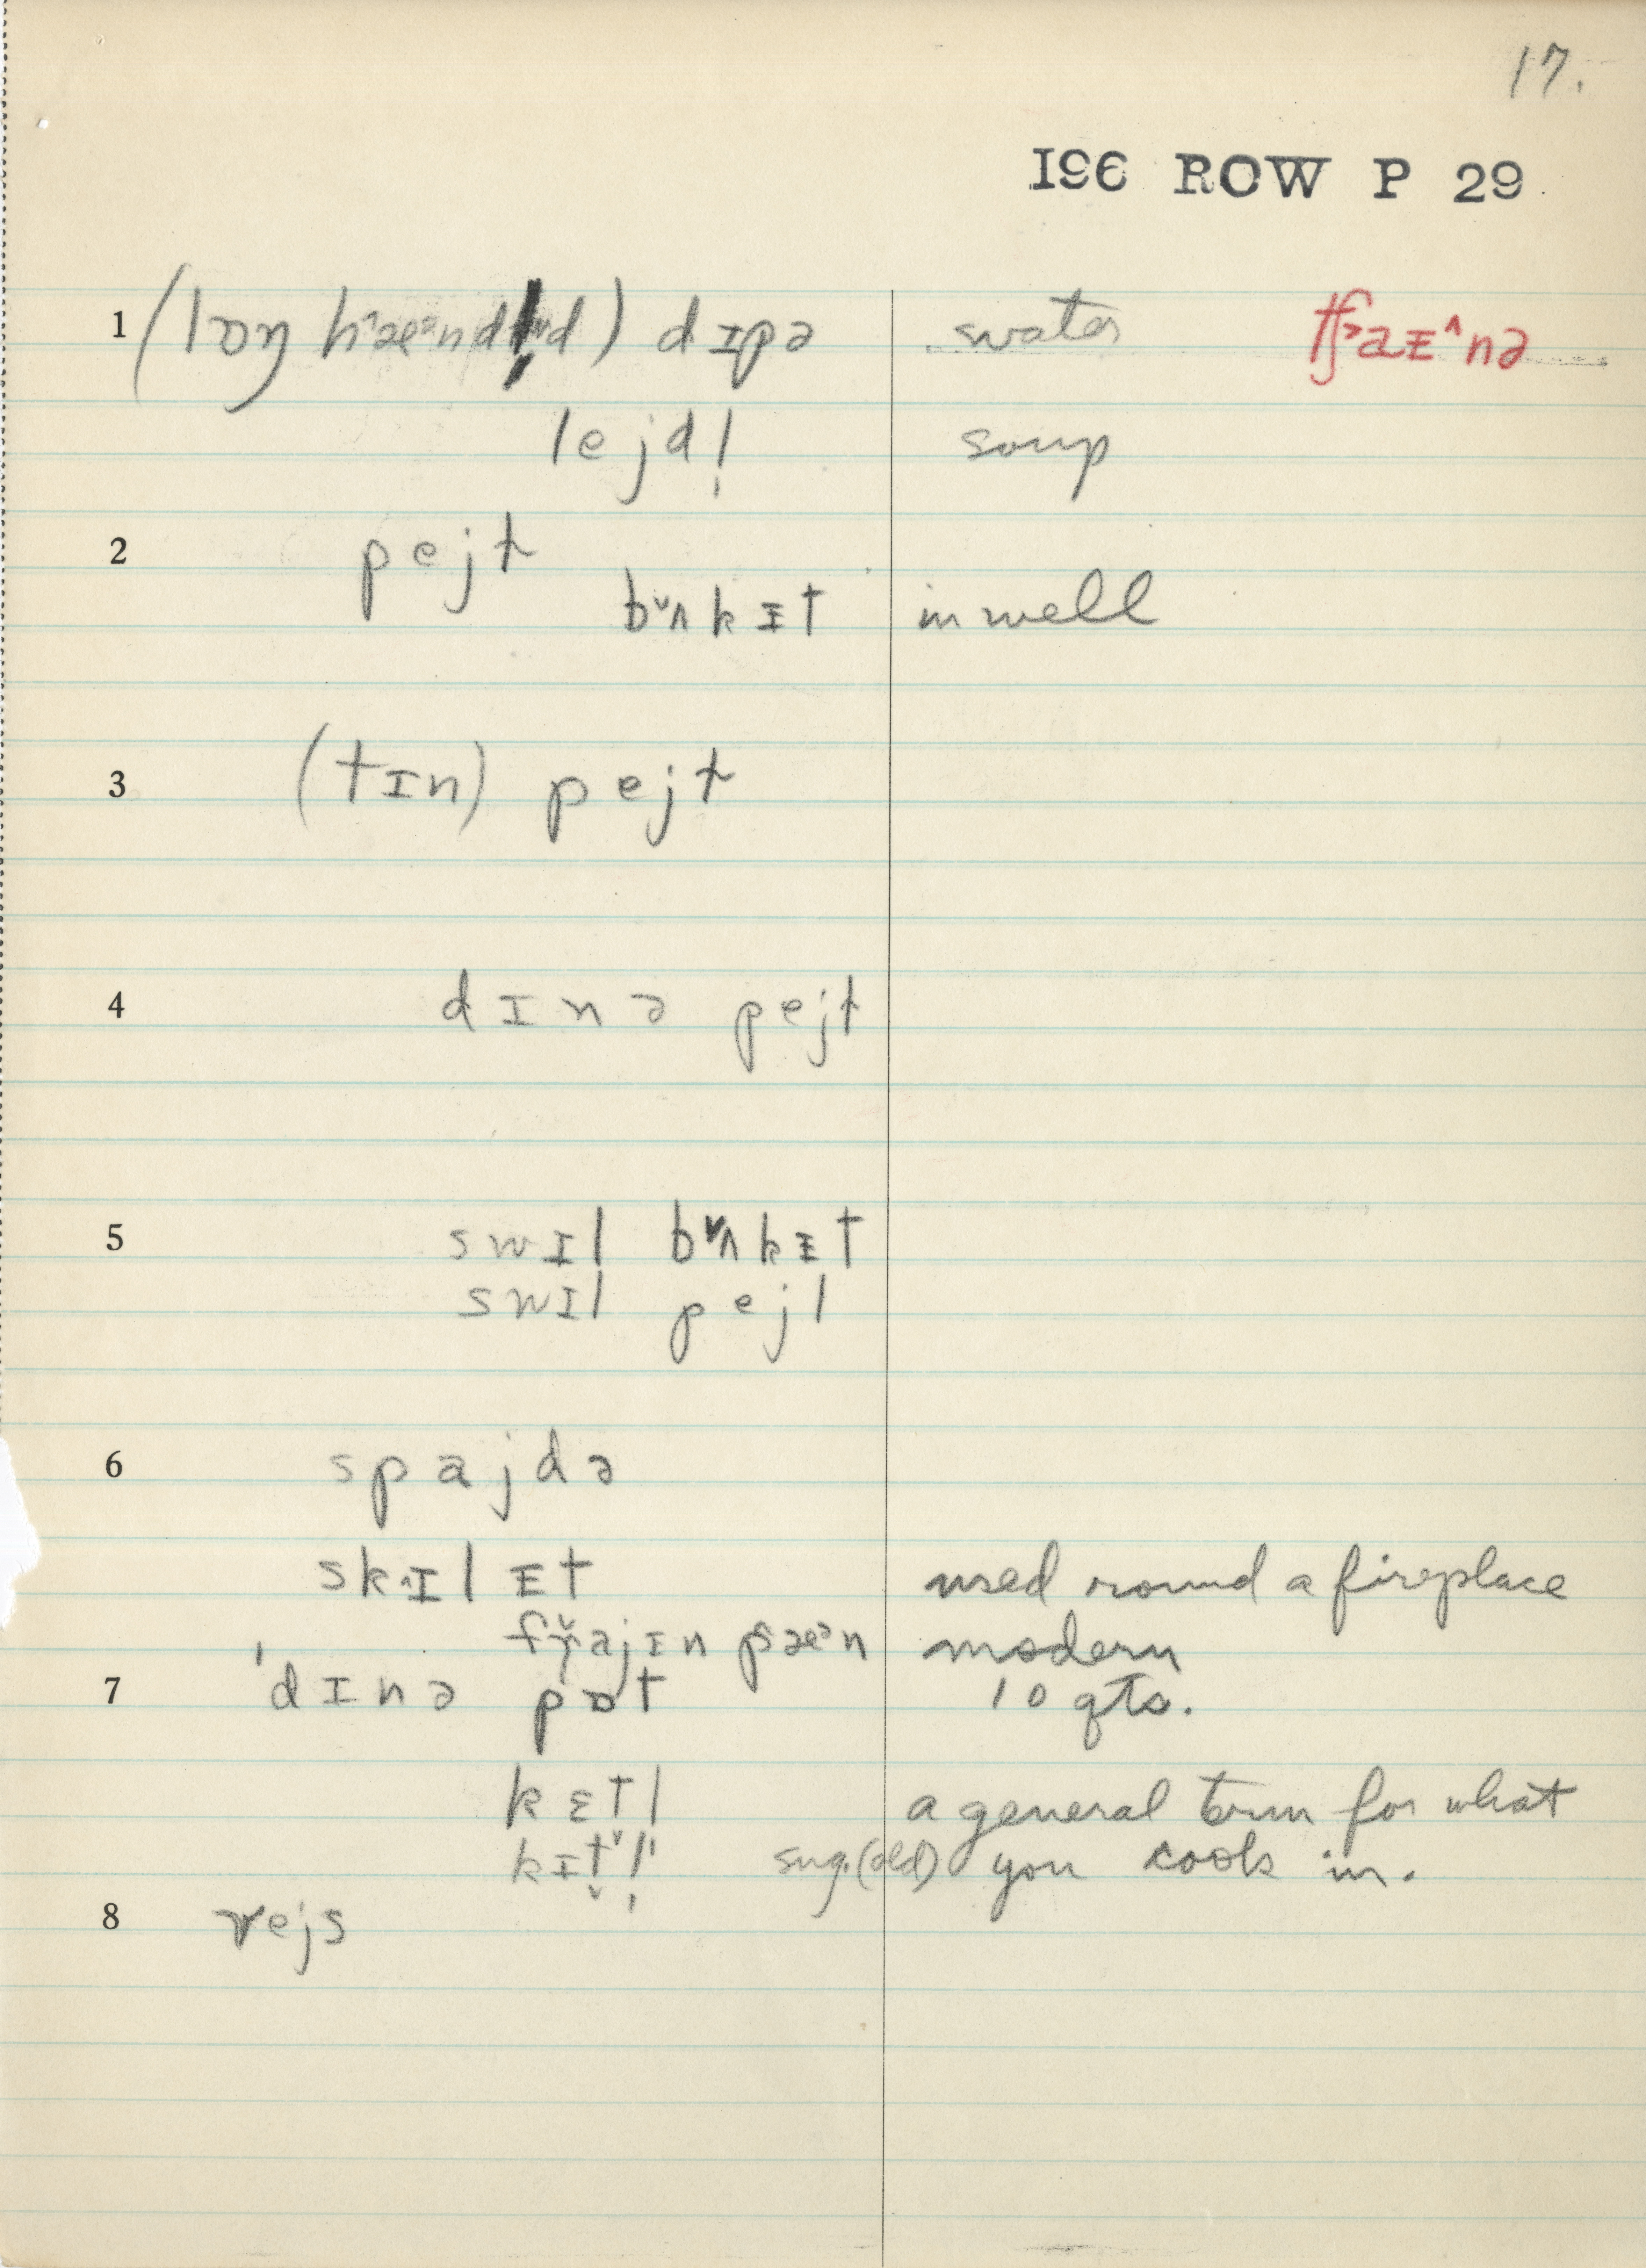 17.
196 ROW P 29
1 (lɒŋ hæ˃nd d) dɪpə water tʃ˃aɪ^nə
lejdl̩ soup
2 pejɫ
bˇʌkɪt in well
3 (tɪn) pejɫ
4 dɪnə pejɫ
5 swɪl bˇʌkɪt
swɪl pejl
6 spajdə
sk^ɪlɪt used round a fireplace
frajɪn pæ˃n modern
7 'dɪnə pɒt 10 qts.
kɛtl a general term for what
kɪt̬l̩ sug. (old) you cook in.
8 vejs